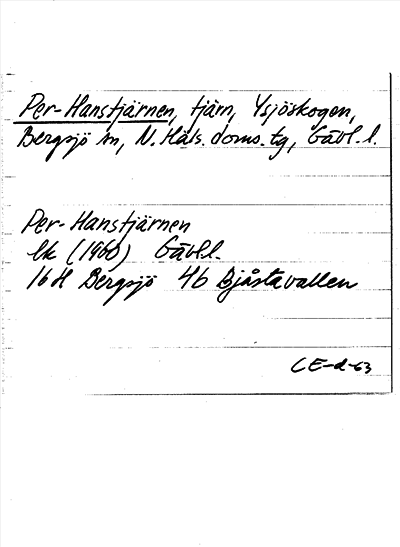 Per-Hanstjärnen, tjärn, Ysjöskogen,
Bergsjö sn, N. Häls. doms. tg, Gävl. l.
Per-Hanstjärnen
Ek (1960) Gävl.l.
16 H Bergsjö 4b Bjåstavallen
CE-d-63